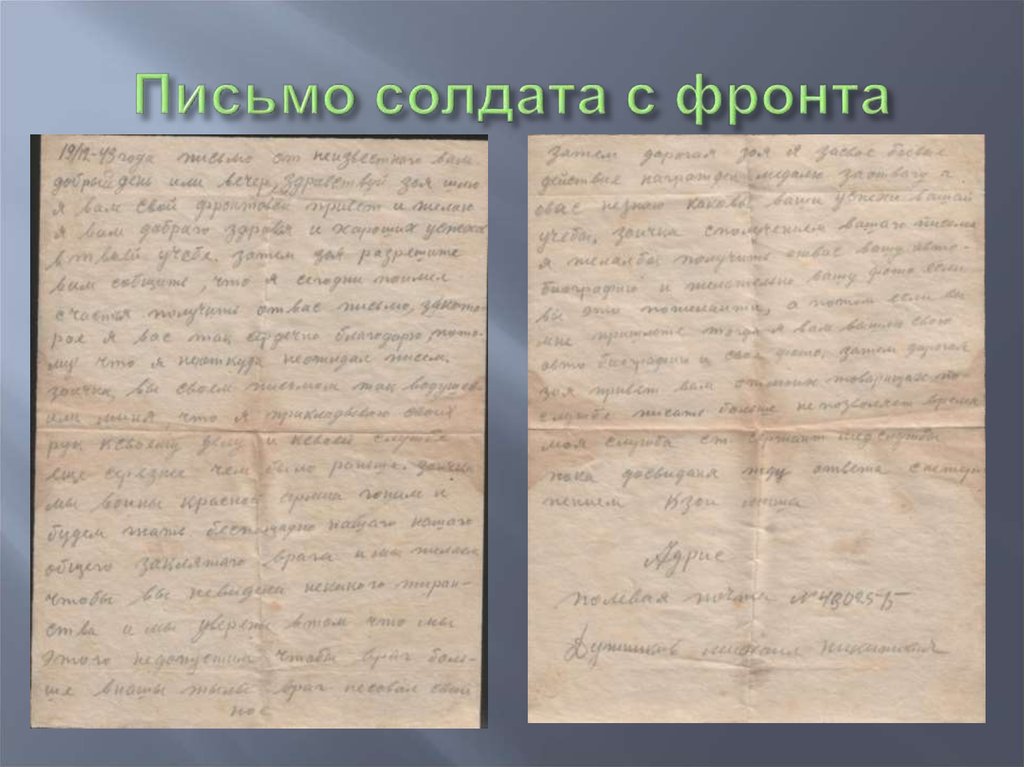 Письмо солдата с фронта
19/12-43 года письмо от неизвестного вам
добрый день или вечер, здравствуй зоя шлю
я вам свой фронтовой привет и желаю
я вам доброго здравя и хароших успеха
в твоей учебе. затем зоя разрешите
вам сообщить, что я сегодни поимел
счастья получить отвас письмо, закото-
рое я вас так сердечно благодарю, пото-
му что я неоткуда неожидал писем.
зоичка, вы своем письмом так водушев-
или меня, что я своих
рук ксвоему делу и ксвоей службе
еще серязнее чем было раньше. зоичка
мы воины красной гоним и
будем гнать беспощадно нашаго нашаго
общего заклятаго врага и мы желаем
чтобы вы невидели некакого тиран-
ства и мы уверены втом что мы
этого недопустим чтобы враг боль-
ше внашы тылы враг несовал свой
нос
зятем дорогая зоя я засвое боевые
действие награжден медалю заотвагу а
овас незнаю каковы ваши успехи вашай
учебы, зоичка сполучением вашаго письма
я желалбы получить отвас вашу авто-
биографию и желательно вашу фото если
вы это пожелаити, а потом если вы
мне пришлете тогда я вам вышлю свою
авто биографию и своя фото, затем дорогая
зоя привет вам отмоих товарищах по
службе писать больше непозволяет время
моя служба ст сержант медслужбы
пока досвидания жду ответа снетер-
пением Кзои миша
Адрис
полевая почта №
михаил